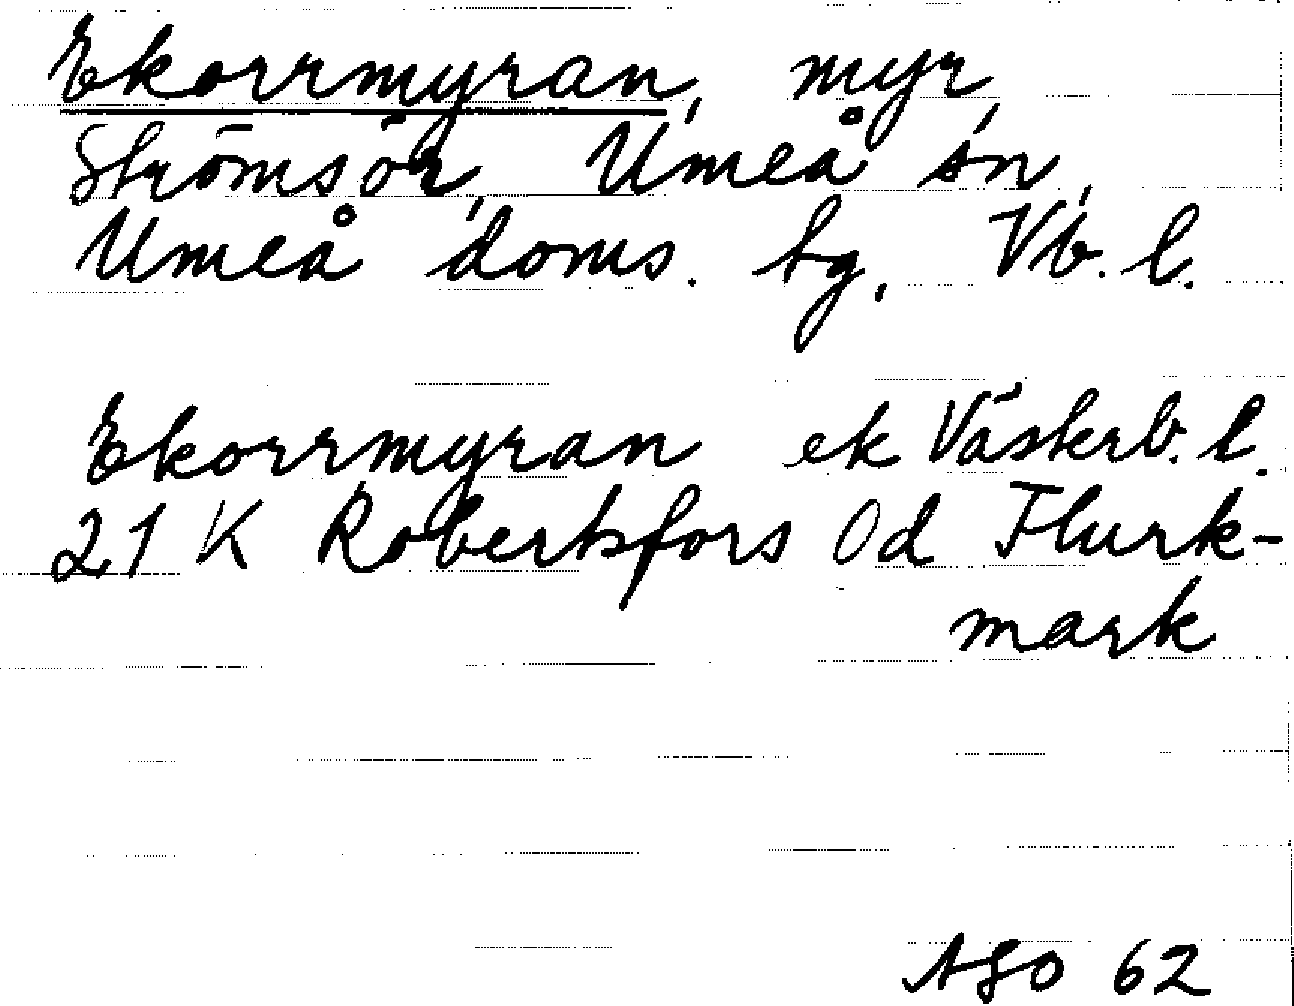 Ekorrmyran, myr,
Strömsör, Umeå sn,
Umeå doms. tg, Vb. l.
Ekorrmyran ek Västerb. l.
21 K Robertsfors 0d Flurk-
mark
AGO 62